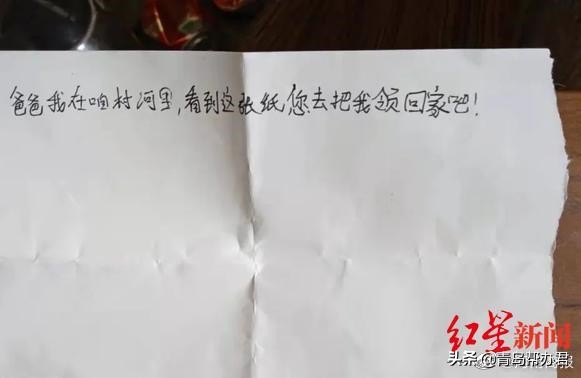 爸爸我在咱村河里,看到这张纸您去把我领回家吧!
红星新闻
头条@青岛帮办君